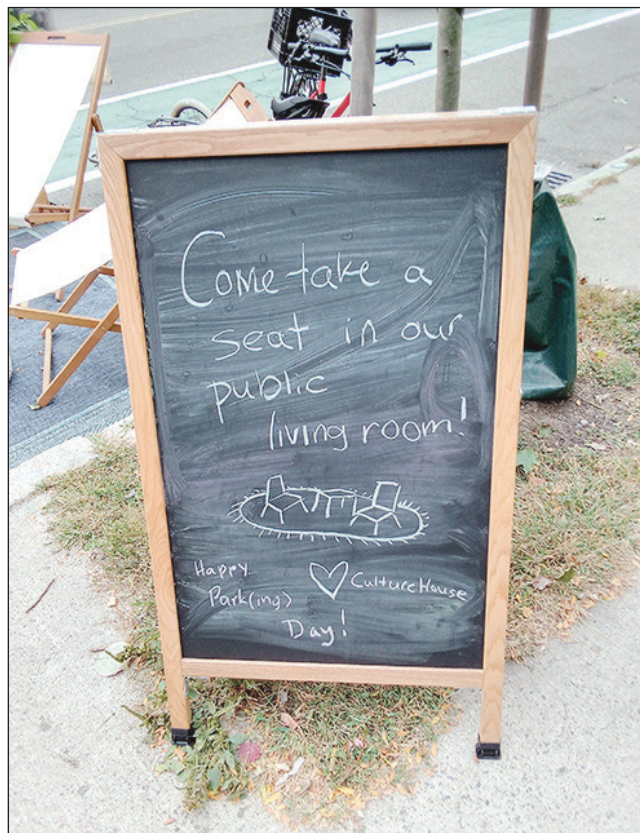 Come take a
seat in our
public
living room!
Happy
Park(ing)
Day!
♡ CultureHouse